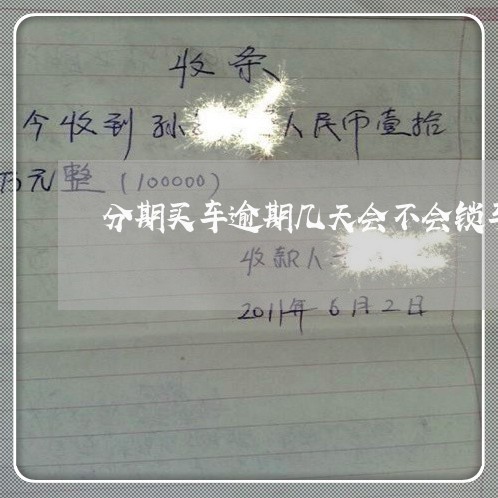 收条
今收到孙 人民币壹拾
万元整（100000）
分期买车逾期几天会不会锁
收款人
2011年6月2日